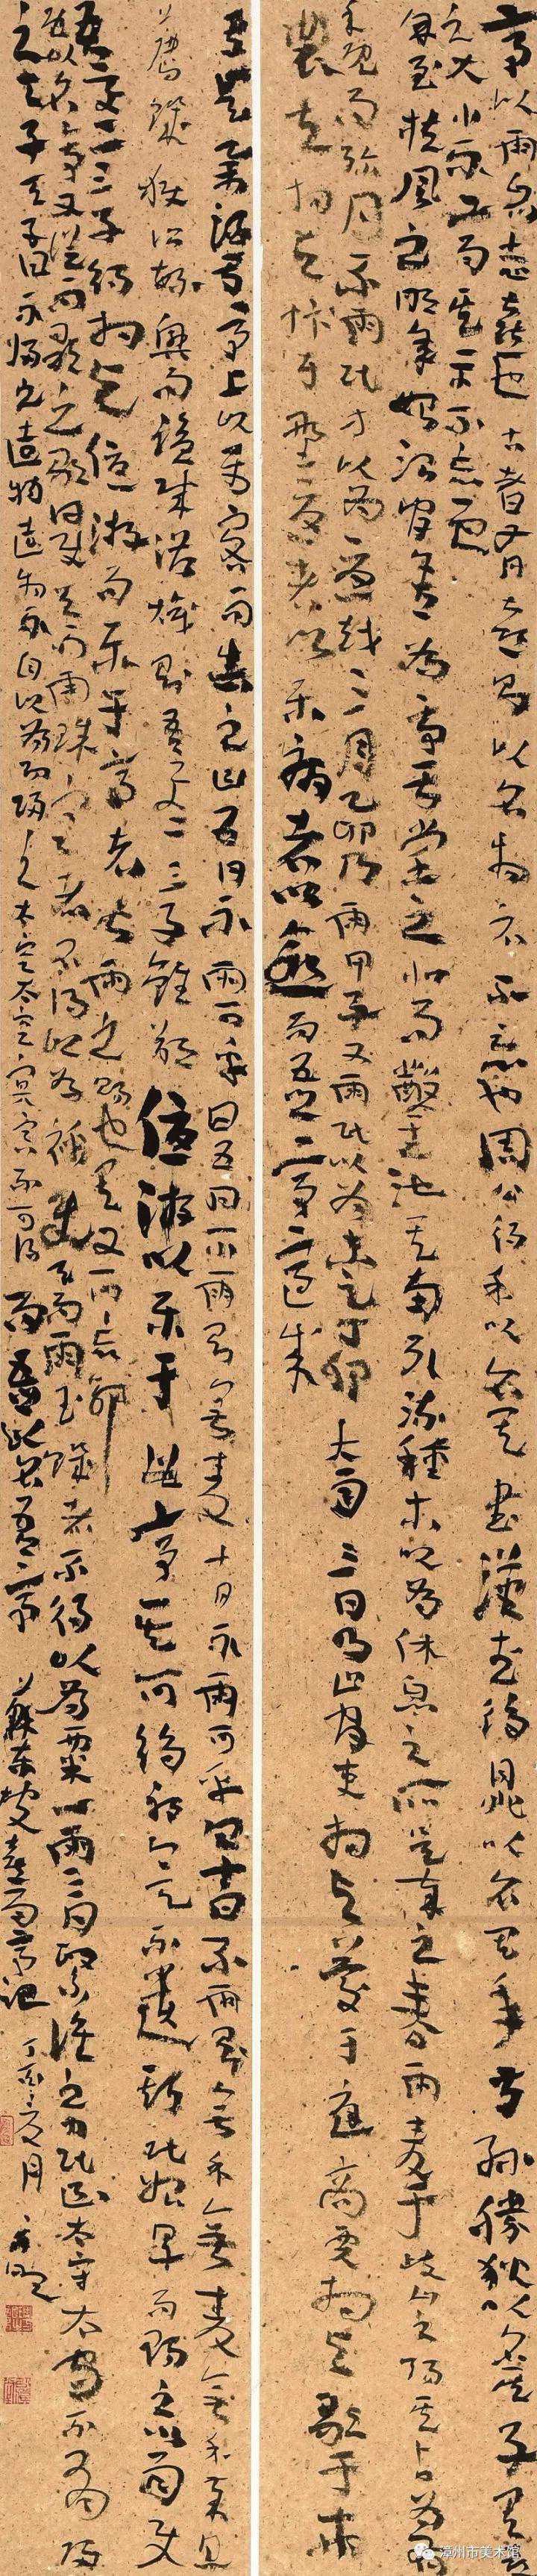 亭以雨名志喜也古者有喜则以名物示不忘也周公得禾以名其书汉武得鼎以名其年叔孙胜狄以名其子其喜
之大小不一而其示不忘一也
余至扶风之明年始治官舍为亭于堂之北而凿其池其南引流种木以为休息之所是年之春雨麦于岐山之阳其占为有
年既而弥月不雨民方以为忧越三月乙卯乃雨甲子又雨民以为未足丁卯大雨三日乃止官吏相与庆于庭商贾相与歌于市
农夫相与忭于野忧者以乐病者以愈而吾之亭适成
于是举酒于亭上以属客而告之曰五日不雨可乎曰五日不雨则无麦十日不雨可乎曰十日不雨则无禾无麦无禾岁且
荐饥狱讼繁兴而盗贼滋炽则吾与二三子虽欲优游以乐于此亭其可得耶今天不遗斯民始旱而赐之以雨使
吾与二三子得相与优游而乐于亭者皆雨之赐也其又可忘邪
既以名亭又从而歌之歌曰使天而雨珠寒者不得以为襦使天而雨玉饥者不得以为粟一雨三日繄谁之力民曰太守太守不有归
之天子天子曰不归之造物造物不自以为功归之太空太空冥冥不可得而名吾以名吾亭 苏东坡喜雨亭记 丁酉 月
漳州市美术馆